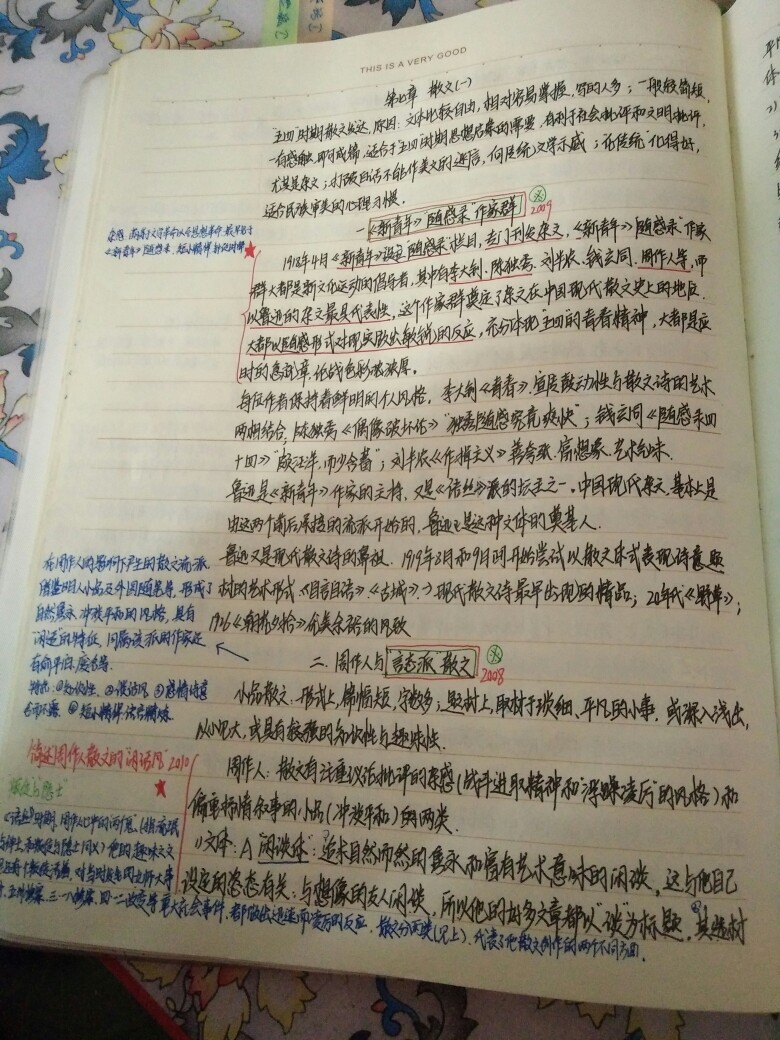 THIS IS A VERY GOOD
第七章 散文(一)
"五四"时期散文发达,原因:文体比较自由,相对容易掌握,写的人多;一般较简短,
一有感触,即可成篇,适合于"五四"时期思想启蒙的需要,有利于社会批评和文明批评,
尤其是杂文;打破白话不能作美文的迷信,向传统文学示威;
适合民族审美的心理习惯。
一《新青年》"随感录"作家群
2009
1918年4月《新青年》设立"随感录"栏目,专门刊发杂文,《新青年》"随感录"作家
群大都是新文化运动的倡导者,其中有李大钊、陈独秀、刘半农、钱玄同、周作人等,
以鲁迅的杂文最具代表性,这个作家群奠定了杂文在中国现代散文史上的地位.
大都以随感形式对现实做出敏锐的反应,充分体现"五四"的青春精神,大都是应
时的急就章,论战色彩浓厚。
每位作者保持着鲜明的个人风格,李大钊《青春》.宣传鼓动性与散文诗的艺术
两相结合,陈独秀《偶像破坏论》"独秀随感究竟爽快";钱玄同《随感录四
十四》"颇汪洋,而少含蓄";刘半农《作揖主义》善夸张.富想象.艺术气味.
鲁迅是《新青年》作家的主将,又是《语丝》派的坛主之一。中国现代杂文,基本上是
由这两个前后承接的流派开始的,鲁迅正是这种文体的奠基人.
鲁迅又是现代散文诗的鼻祖.1919年8月和9月间开始尝试以散文体式表现诗意题
材的艺术形式.《自言自语》.《古城》.)现代散文诗最早出现的精品;20年代《野草》;
1926《朝花夕拾》
二.周作人与"言志派"散文
2008
小品散文:形式上,篇幅短,字数多;题材上,取材于琐细、平凡的小事,或深入浅出,
以小见大,或具有较强的知识性与趣味性.
周作人:散文有注重议论批评的杂感(战斗进取精神和"浮躁凌厉"的风格)和
偏重抒情叙事的小品(冲淡平和)的两类.
1)文体:A"闲谈体":追求自然而然的隽永和富有艺术意味的闲谈,这与他自己
设定的姿态有关:与想像的友人闲谈,所以他的好多文章都以"谈"为标题.其选材
《新青年》随感录.短小精悍
在周作人的影响下产生的散文流派
借鉴明人小品及外国随笔等,形成了
自然隽永、冲淡平和的风格,具有
闲适的特征,同属该派的作家还
有俞平伯,废名等.
特点:①知识性.②谈话风.③感情诗意
④短小精悍
简述周作人散文的"闲话风"2010
"叛徒与隐士"
《语丝》时期,周作人心中的两个鬼
三一八惨案、四一二政变等重大社会事件,都做出迅速而凌厉的反应.散文分两类(见上).代表了他散文创作的两个不同方面.